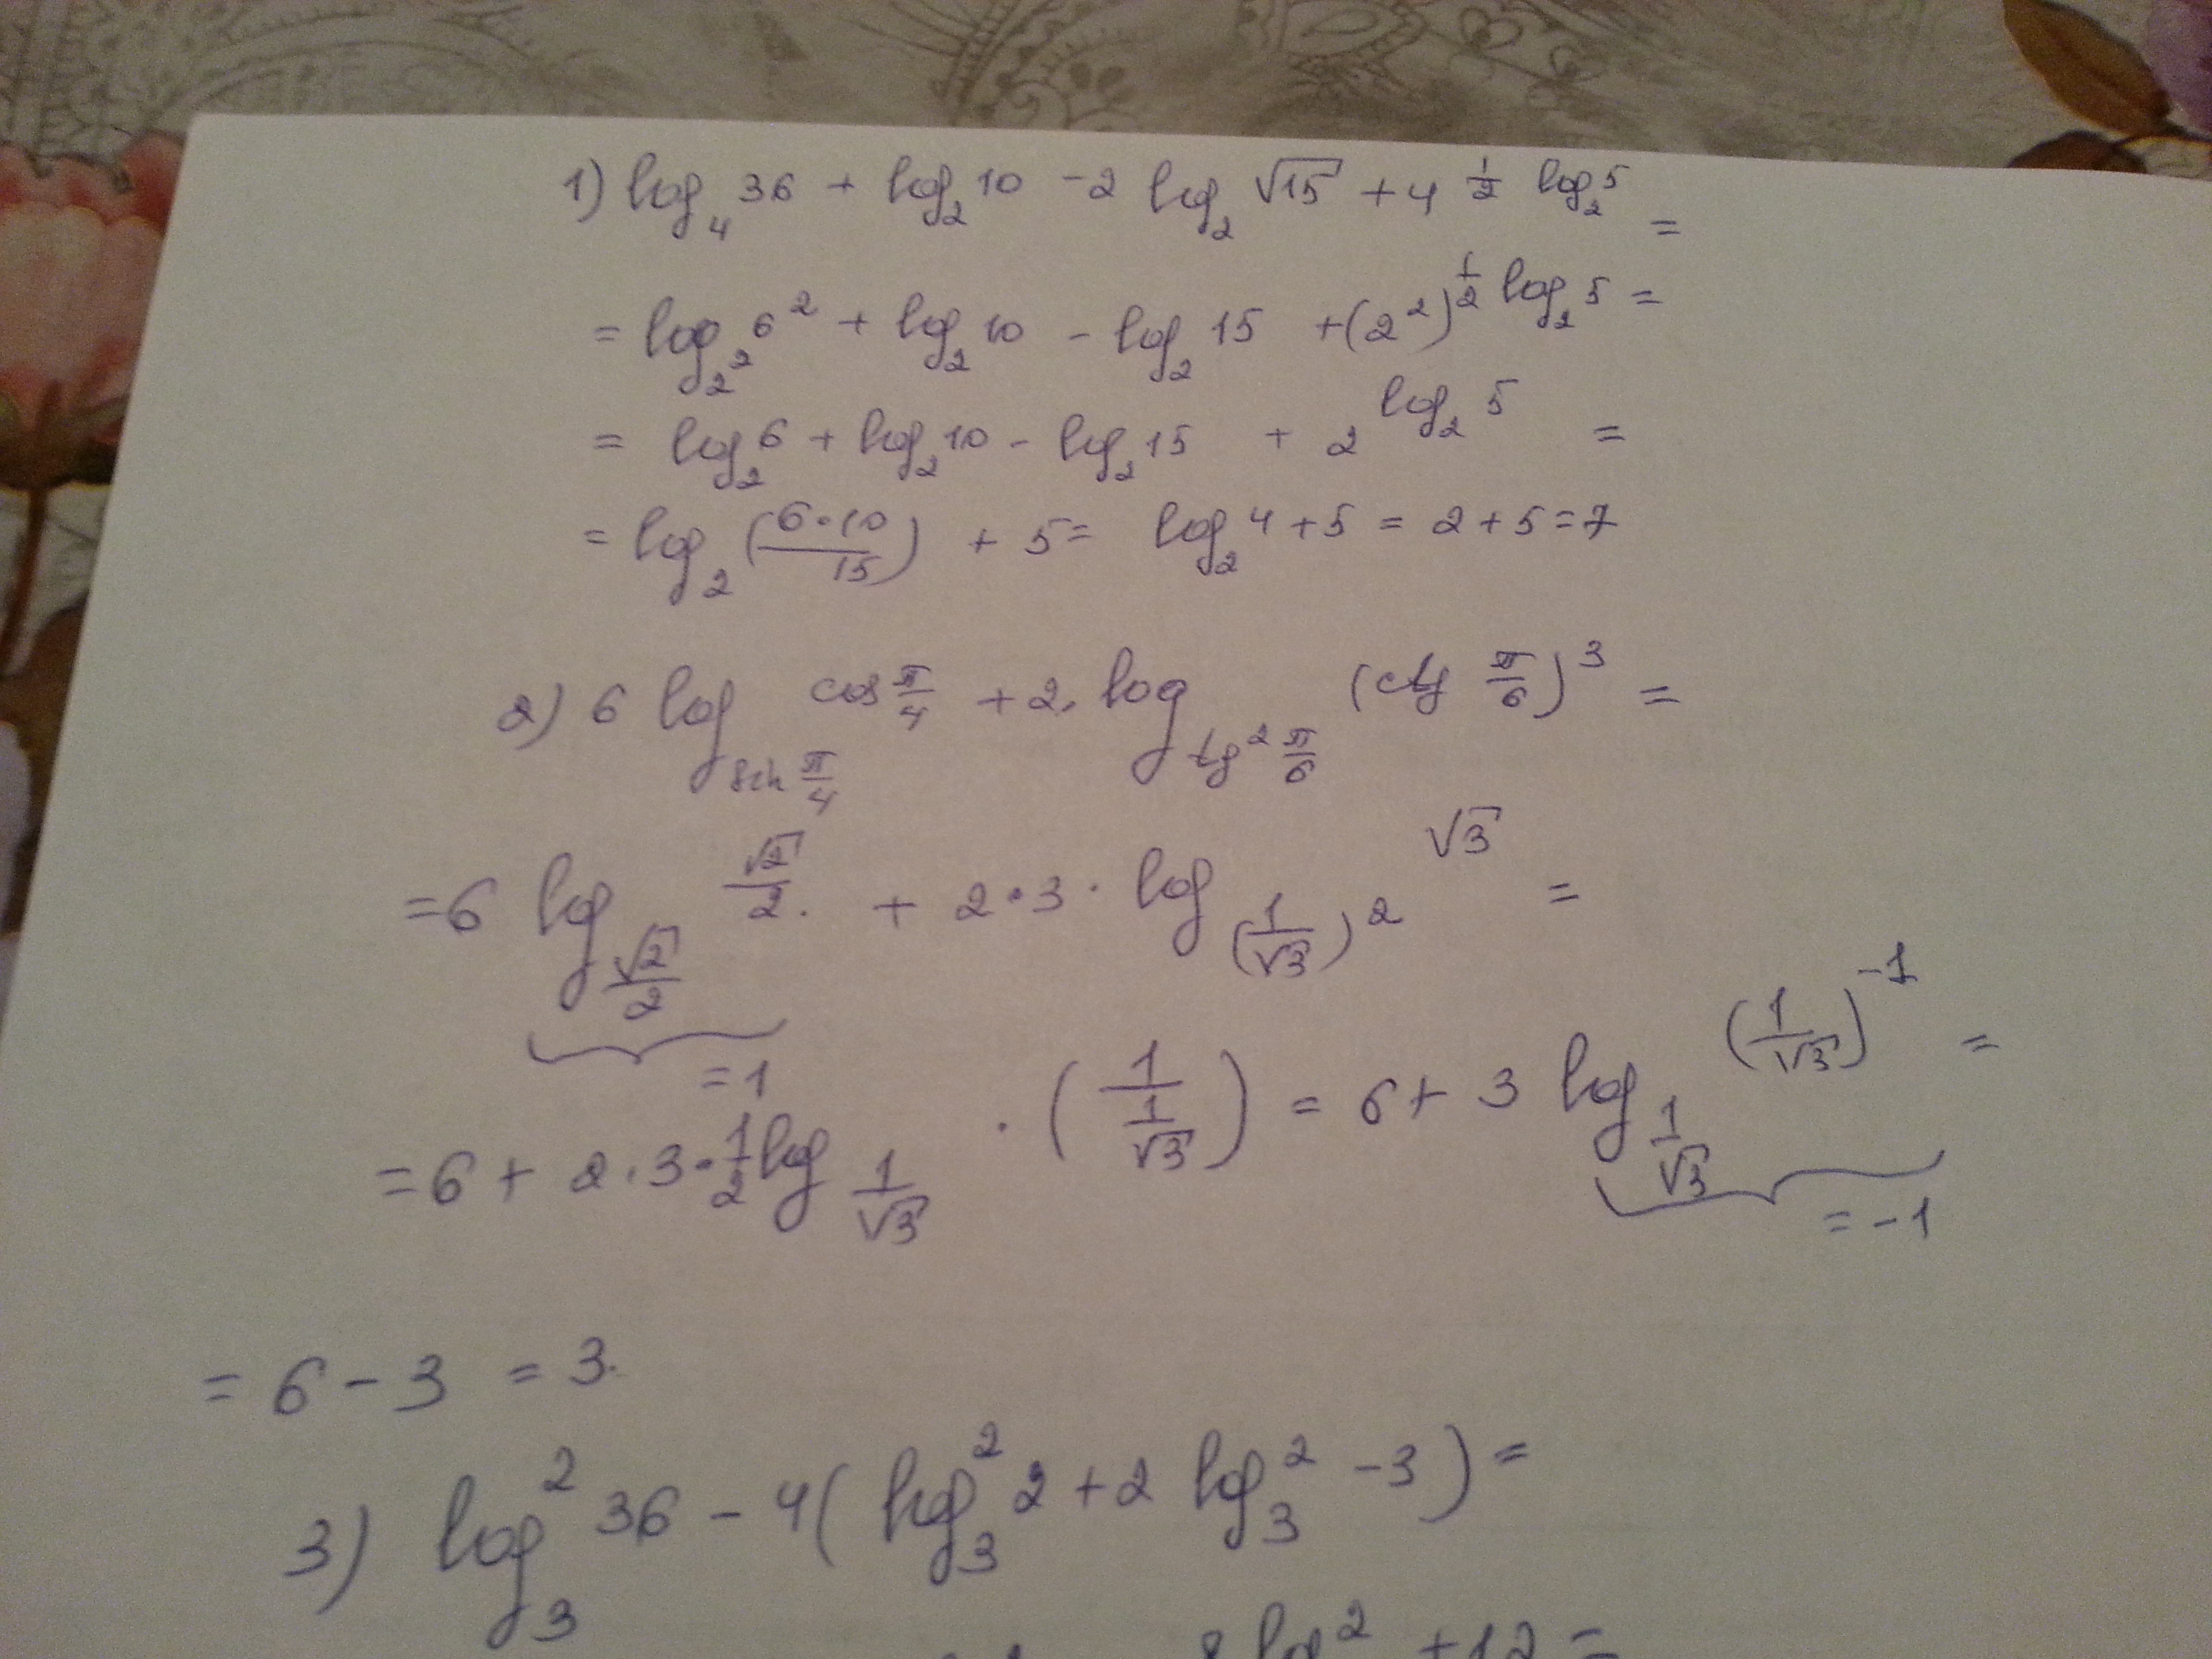 1) log₄ 36 + log₂ 10 - 2 log₂ √15 + 4^(1/2 log₂ 5) =
= log_(2²) 6² + log₂ 10 - log₂ 15 + (2²)^(1/2 log₂ 5) =
= log₂ 6 + log₂ 10 - log₂ 15 + 2^(log₂ 5) =
= log₂ (6·10/15) + 5 = log₂ 4 + 5 = 2 + 5 = 7
2) 6 log_(sin π/4) cos π/4 + 2· log_(tg² π/6) (ctg π/6)³ =
= 6 log_(√2/2) √2/2 + 2·3· log_((1/√3)²) √3 =
= 1
= 6 + 2·3·1/2 log_(1/√3) · (1/(1/√3)) = 6 + 3 log_(1/√3) (1/√3)⁻¹ =
= -1
= 6 - 3 = 3.
3) log₃² 36 - 4(log₃² 2 + 2 log₃ 2 - 3) =
8 log 2 + 12 =